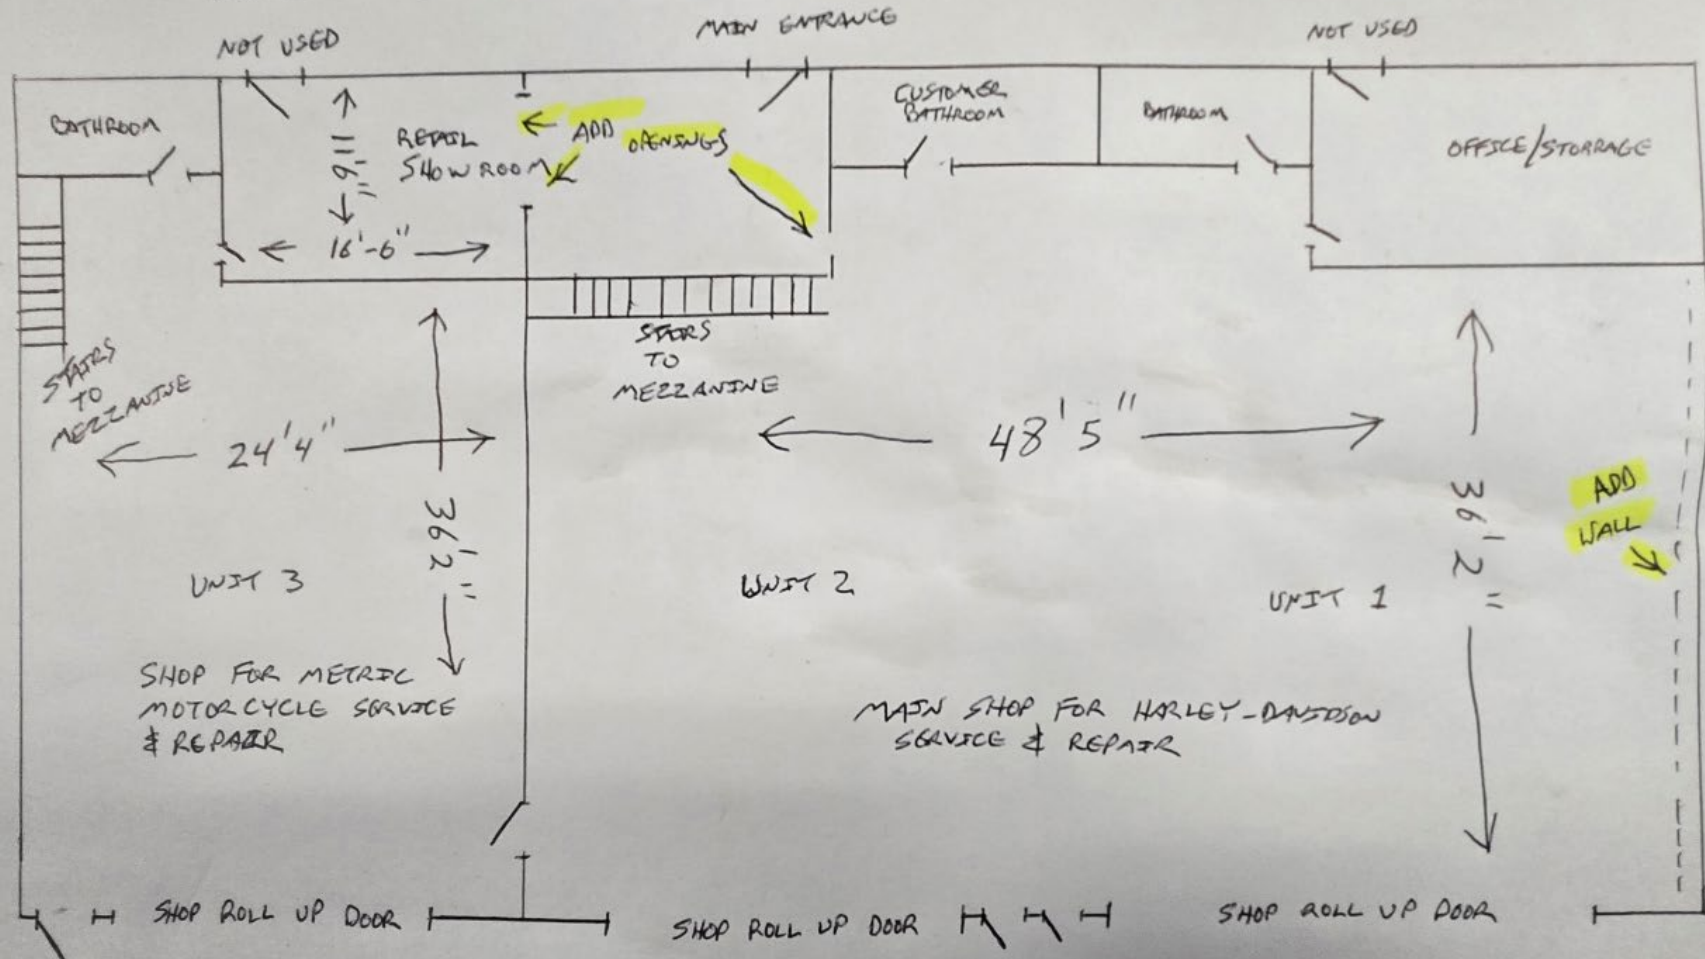 NOT USED
MAIN ENTRANCE
NOT USED
BATHROOM
11'6"
RETAIL
SHOWROOM
ADD OPENINGS
CUSTOMER
BATHROOM
BATHROOM
OFFICE/STORRAGE
16'-6"
STAIRS
TO
MEZZANINE
STAIRS
TO
MEZZANINE
24'4"
36'2"
48'5"
36'2"
ADD
WALL
UNIT 3
UNIT 2
UNIT 1
SHOP FOR METRIC
MOTORCYCLE SERVICE
& REPAIR
MAIN SHOP FOR HARLEY-DAVIDSON
SERVICE & REPAIR
SHOP ROLL UP DOOR
SHOP ROLL UP DOOR
SHOP ROLL UP DOOR